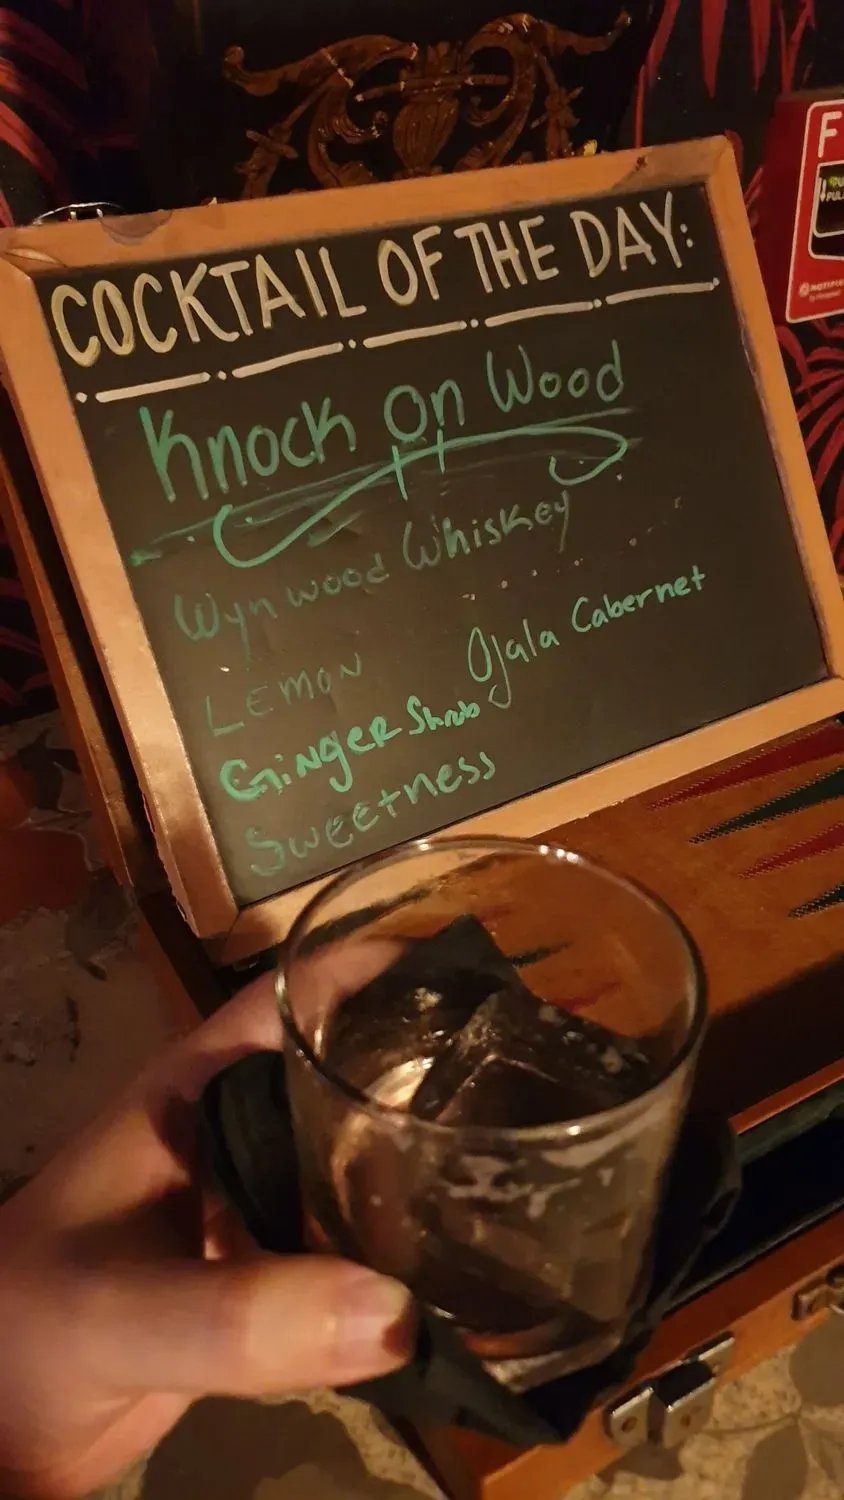 COCKTAIL OF THE DAY:
Knock On Wood
Wynwood Whiskey
LEMON
Ojala Cabernet
GiNgER Shrub
SwEEtness
F